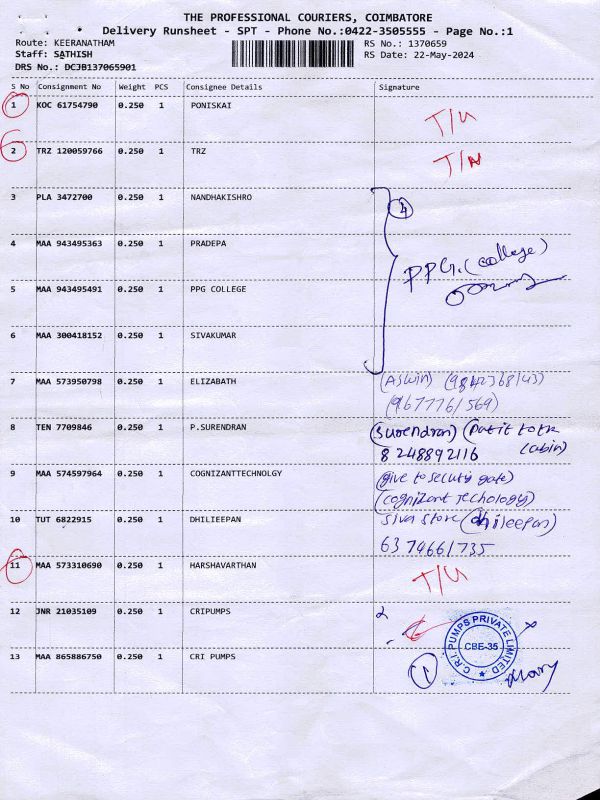 THE PROFESSIONAL COURIERS, COIMBATORE
Delivery Runsheet - SPT - Phone No.:0422-3505555 - Page No.:1
Route: KEERANATHAM
RS No.: 1370659
Staff: SATHISH
RS Date: 22-May-2024
DRS No.: DCJB137065901
S No Consignment No Weight PCS Consignee Details Signature
1 KOC 61754790 0.250 1 PONISKAI
T/U
2 TRZ 120059766 0.250 1 TRZ
3 PLA 3472700 0.250 1 NANDHAKISHRO
4
4 MAA 943495363 0.250 1 PRADEPA
PPG. (college)
5 MAA 943495491 0.250 1 PPG COLLEGE
6 MAA 300418152 0.250 1 SIVAKUMAR
7 MAA 573950798 0.250 1 ELIZABATH
(Aswin)
(9677761569)
8 TEN 7709846 0.250 1 P.SURENDRAN
(Surendran)
8248892116 (cabin)
9 MAA 574597964 0.250 1 COGNIZANTTECHNOLGY
(give to secuty gate)
(cognizant techology)
10 TUT 6822915 0.250 1 DHILIEEPAN
siva store (dhileepan)
6374661735
11 MAA 573310690 0.250 1 HARSHAVARTHAN
T/U
12 JNR 21035109 0.250 1 CRIPUMPS
C.R.I. PUMPS PRIVATE LIMITED
CBE-35
13 MAA 865886750 0.250 1 CRI PUMPS
1